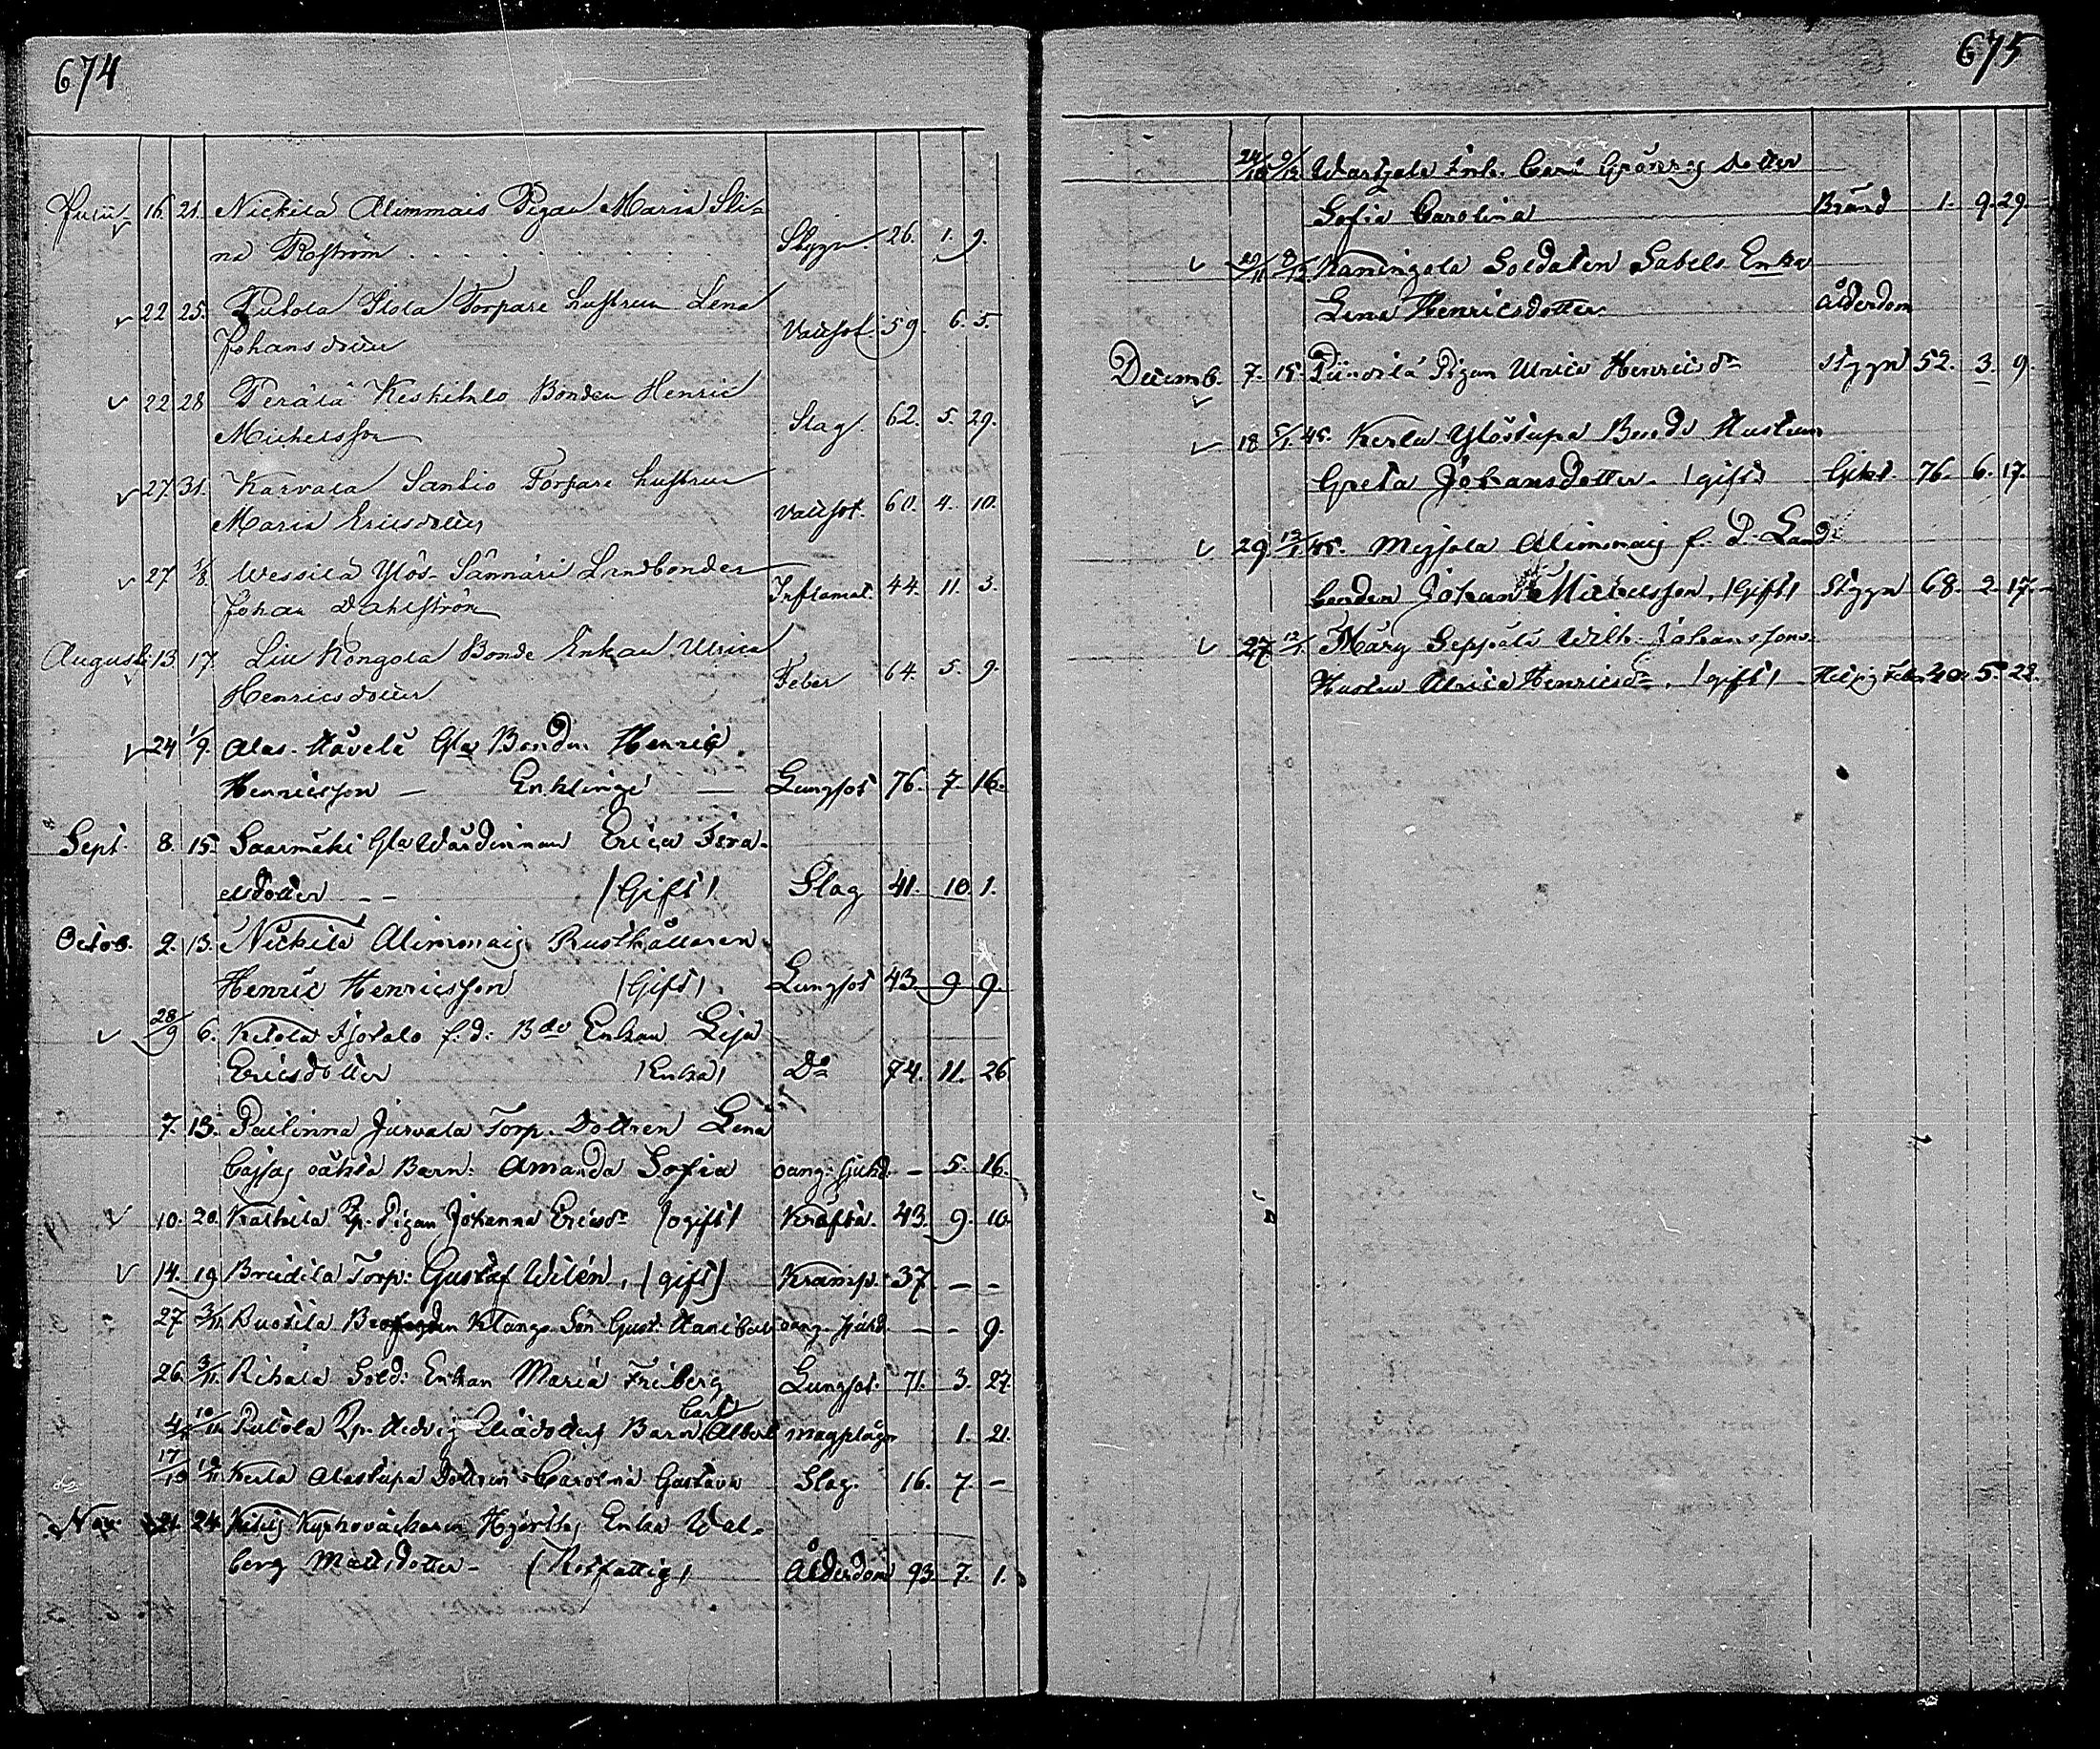 674
Junii 16 21. Nickilä Alimmais Pigan Maria Sli-
na Roström Stygn 26. 1. 9.
22 25. Putola Ilola Torpare hustrun Lena
Johansdotter Vattsot. 59. 6. 5.
22 28 Perälä Keskitalo Bonden Henric
Michelsson Slag. 62. 5. 29.
27. 31. Karvala Santio Torpare hustrun
Maria Ericsdotter Vattsot. 60. 4. 10.
27 1/8. Wessilä Ylös-Sännäri Landbonden
Johan Dahlström Inflamat. 44. 11. 3.
August: 13 17. Liu Kongola Bonde Enkan Ulrica
Henricsdotter Feber 64. 5. 9.
24 1/9. Alas-Hävelä Gla Bonden Henric
Henricsson — Enklinge — Lungsot 76. 7. 16.
Sept. 8. 15. Saarmäki Gla Wärdinnan Erica Isra-
elsdotter -- /Gift/ Slag 41. 10. 1.
Octob. 2. 13. Nickilä Alimmais Rusthållaren
Henric Henricsson /Gift/ Lungsot 43. 9 9.
28/9 6. Kitola Isotalo f.d: Bde Enkan Lisa
Ericsdotter /Enka/ Do 74. 11. 26
7. 13. Pailinna Jurvala Torp. Dottren Lena
Cajsas oäkta Barn: Amanda Sofia oang: sjukd. — 5. 16.
10. 20. Kalkila Pigan Johanna Ericsdr /ogift/ Kräfta. 43. 9. 10.
14. 19. Bredila Torp: Gustaf Wilén, /gift/ Kramp. 37. — —
27 3/11. Ruotila Klangs Son Gust. oang. sjukd. — — 9.
26. 3/11. Rihala Sold: Enkan Maria Friberg Lungsot. 71. 3. 27.
Carl
10/11. Putola Hedvig Barn Albert magplågor 1. 21.
17/10 Kerla Alastupa Dottren Carolina Gustava Slag. 16. 7. —
Nov: 21. 24. Enka Wal-
borg Mattsdotter — (Rotfattig) Ålderdom 93. 7. 1.
675
24/10 Enk. Dotter
Sofia Carolina Bränd 1. 9. 29.
8/12. Kaningola Soldaten Sabels Enka
Lena Henricsdotter Ålderdom
Decemb. 7. 15. Pigan Ulrica Henricsdr Stygn 52. 3. 9.
18 5/1. 45. Kerla Ylöstupa Bonde Hustrun
Greta Johansdotter — /gift/ Gikt. 76. 6. 17.
29 12/1 45. Alimmais f. d. Land-
bonden Johan Michelsson, /Gift/ Stygn 68. 2. 17.
27 12/1. Seppälä Wilh. Johanssons
Hustru Ulrica Henricsdr, /gift/ Feber 40. 5. 22.